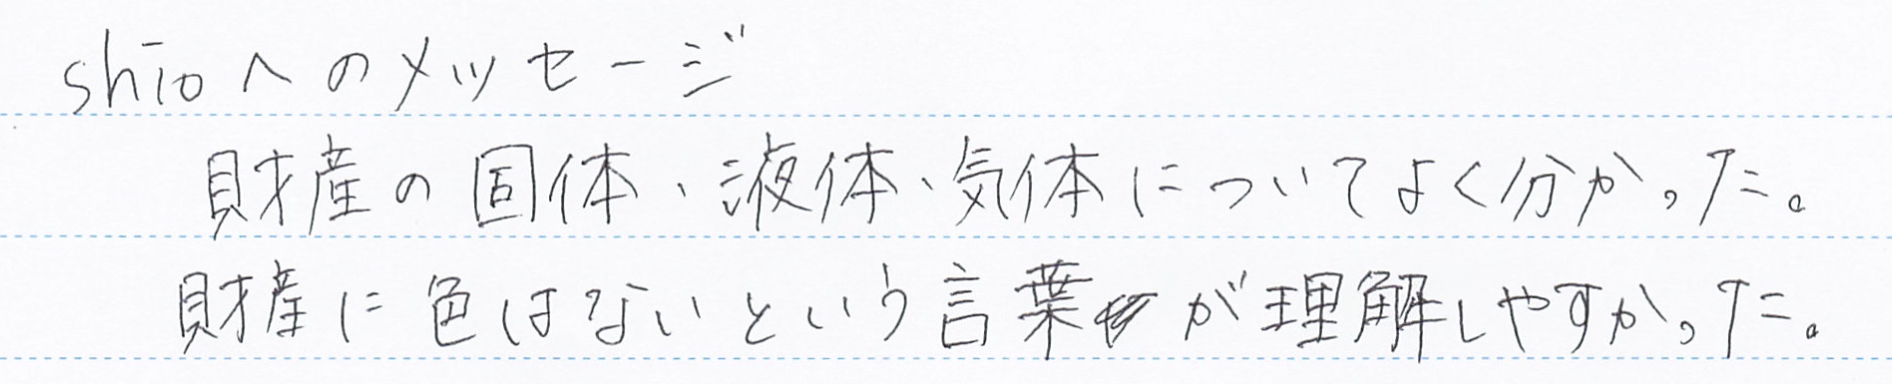 shioへのメッセージ
財産の固体、液体、気体についてよく分かった。
財産に色はないという言葉が理解しやすかった。